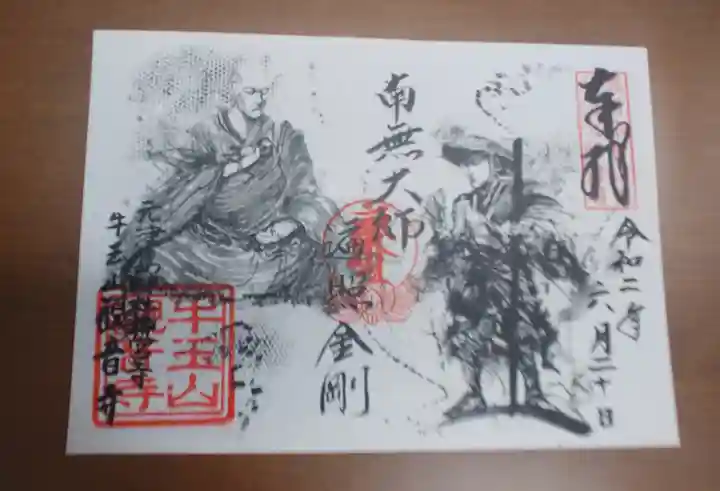 奉拝
令和二年
六月二十日
南無大師
遍照金剛
牛玉山
観音寺
牛玉山観音寺